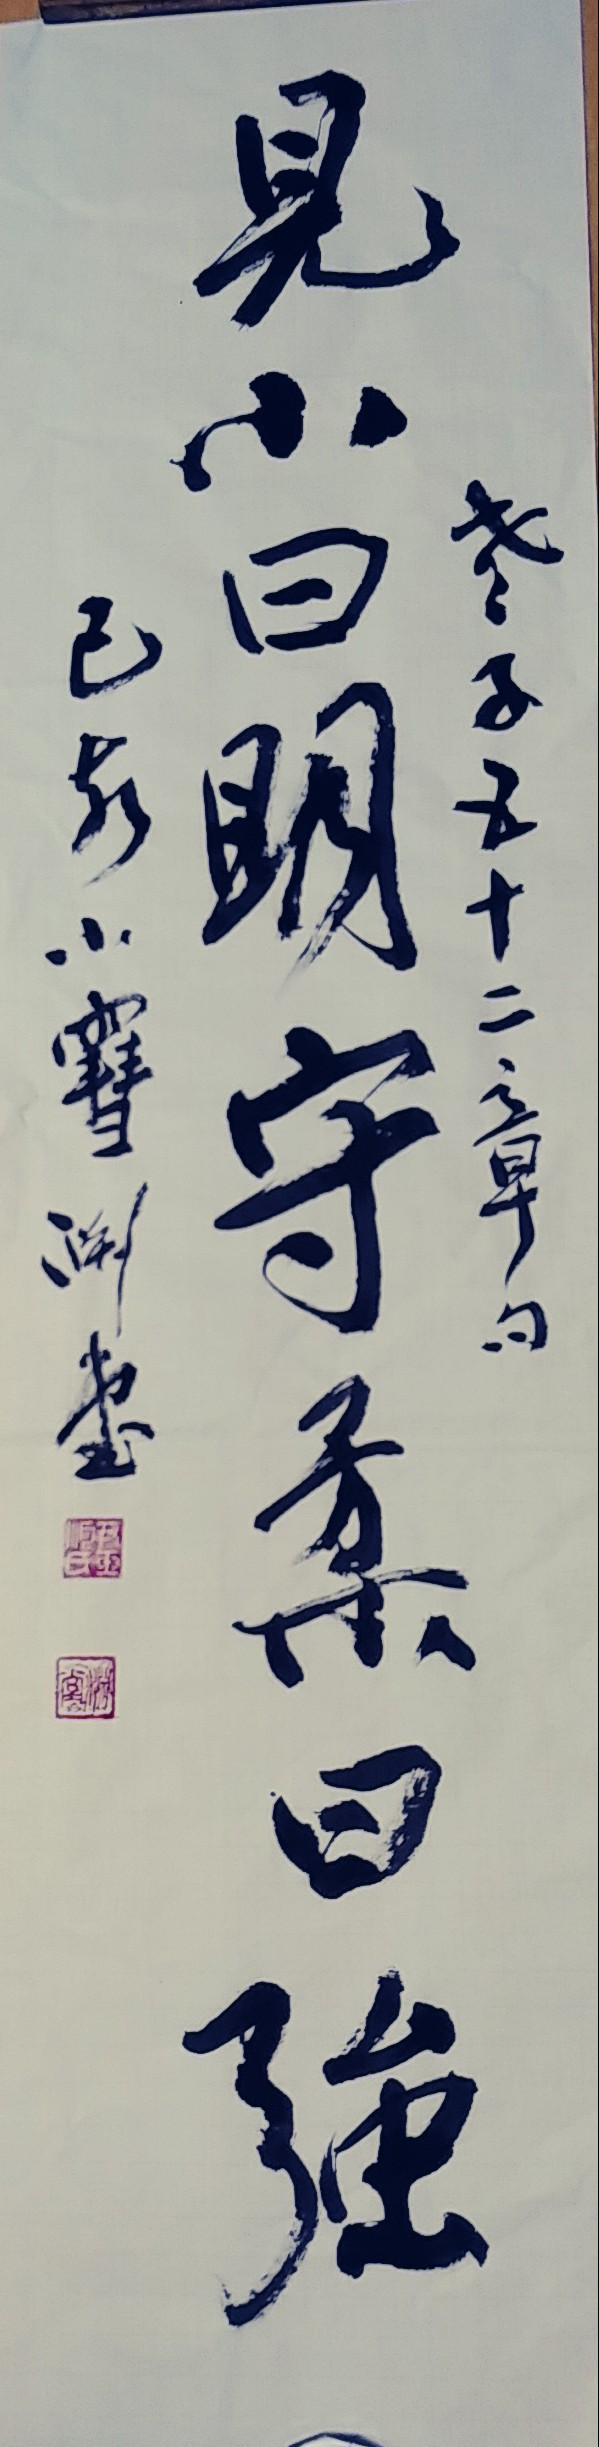 老子五十二章句
見小曰明守柔曰強
己亥小雪淵堂